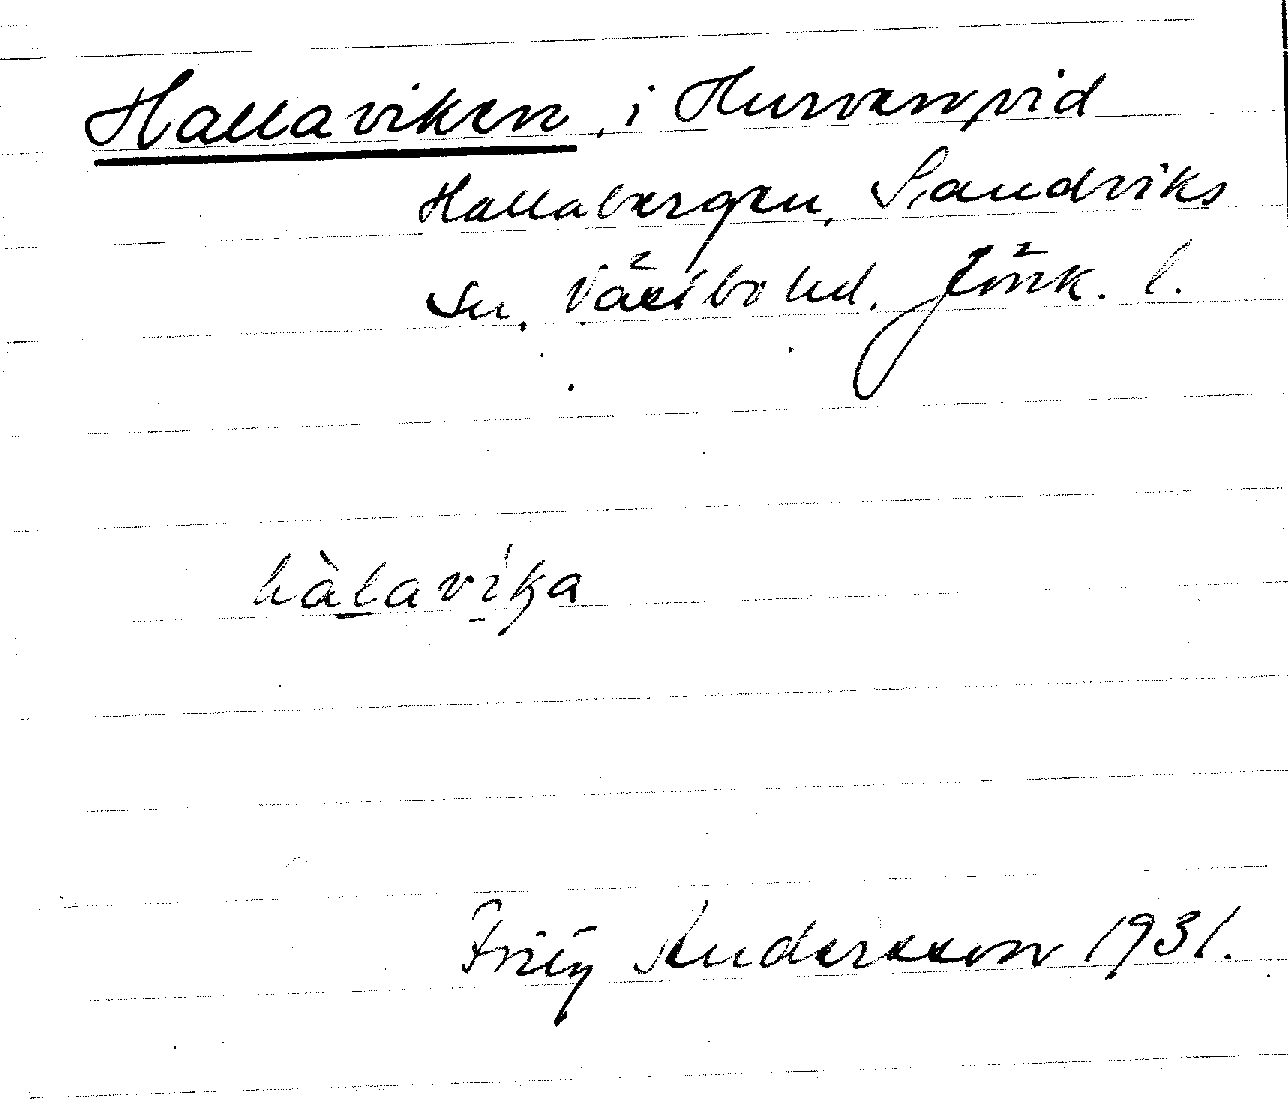 Hallaviken, i Hurven, vid
Hallabergen, Sandviks
sn, Västbo hd. Jönk. l.
hàlavika
Fritz Andersson 1931.